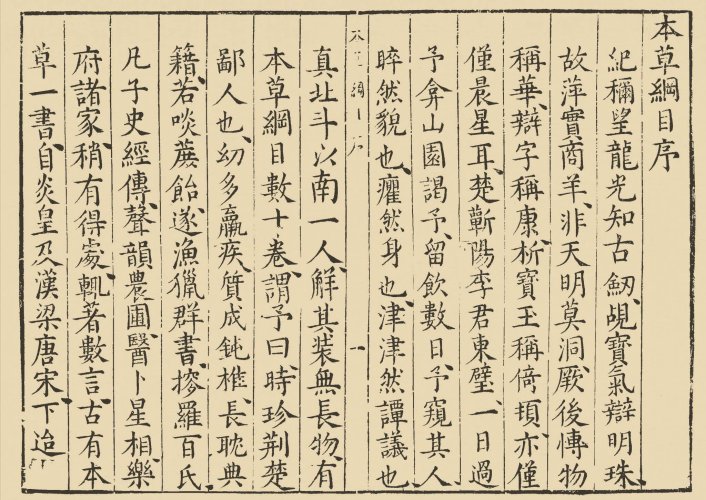 本草綱目序
紀稱望龍光知古劒覘寶氣辯明珠
故萍實商羊非天明莫洞厥後愽物
稱華辯字稱康析寶玉稱倚頓亦僅
僅晨星耳楚蘄陽李君東璧一日過
予弇山園謁予留飲數日予窺其人
睟然貌也癯然身也津津然譚議也
真北斗以南一人解其裝無長物有
本草綱目數十卷謂予曰時珍荆楚
鄙人也幼多羸疾質成鈍椎長耽典
籍若啖蔗飴遂漁獵群書搜羅百氏
凡子史經傳聲韻農圃醫卜星相樂
府諸家稍有得處輒著數言古有本
草一書自炎皇及漢梁唐宋下迨